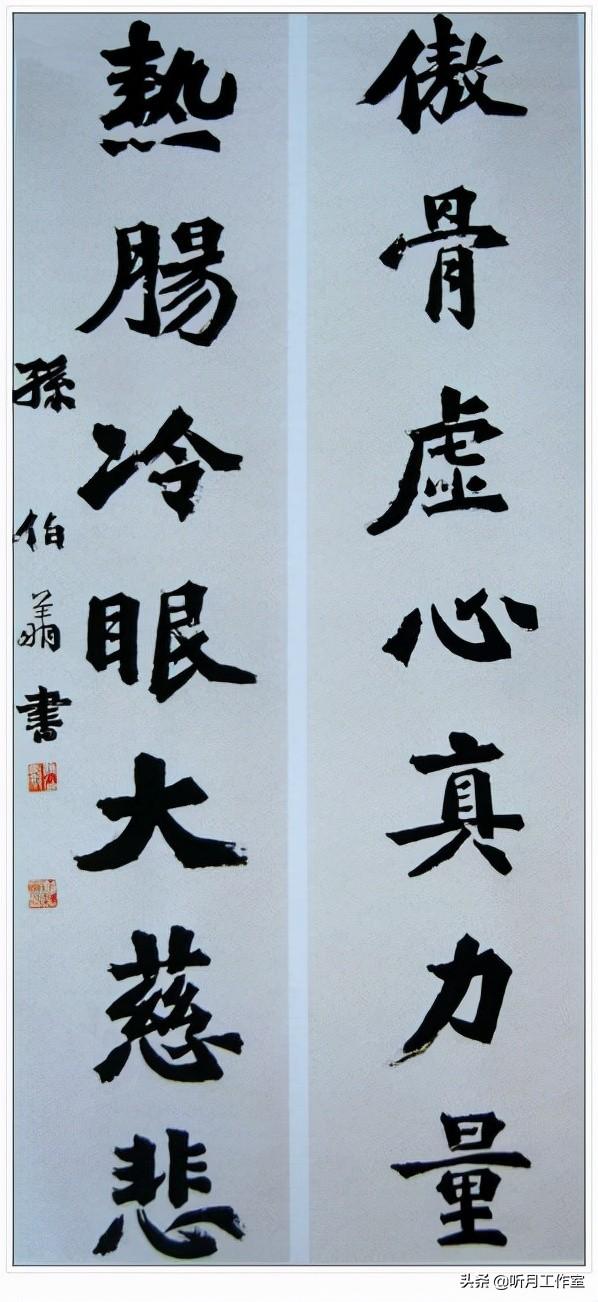 傲骨虚心真力量
熱腸冷眼大慈悲
孫伯翕書
头条 @听月工作室